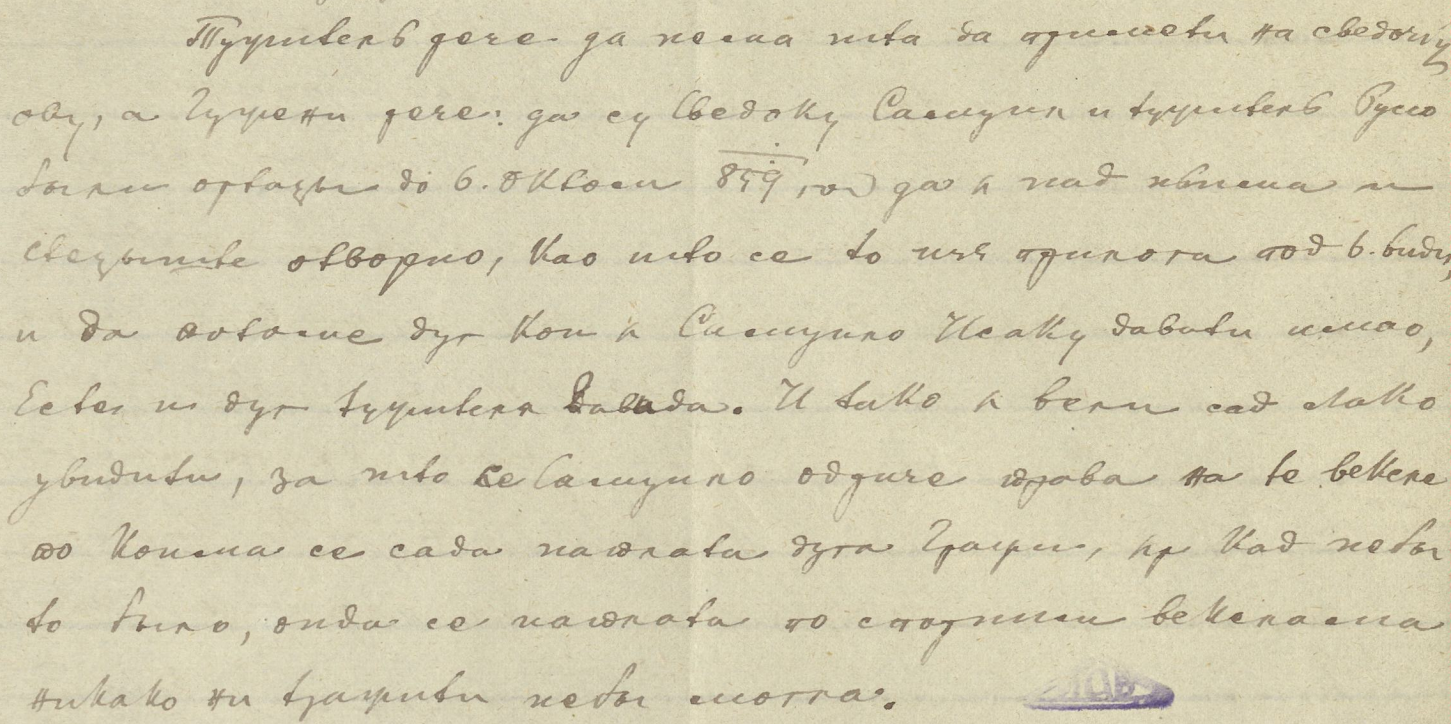 Тужитель рече да нема шта да примети на сведочбу
ову, а Тужени рече: да су Сведоку Самуил и тужитель Русо
были ортацы до 6. Октом 859 год да є над ньима и
стецыште отворио, Као што се то изъ прилога под 6. види,
и да потоме дуг Кои є Самуило Исаку давати имао,
Есте и дуг тужителя Давида. И тако є вели сад лако
увидити, за што се Самуило одриче права на те векселе
по Коима се сада наплата дуга Тражи, єр Кад небы
то было, онда се наплата по спорними векселама
никако ни тражити небы могла.